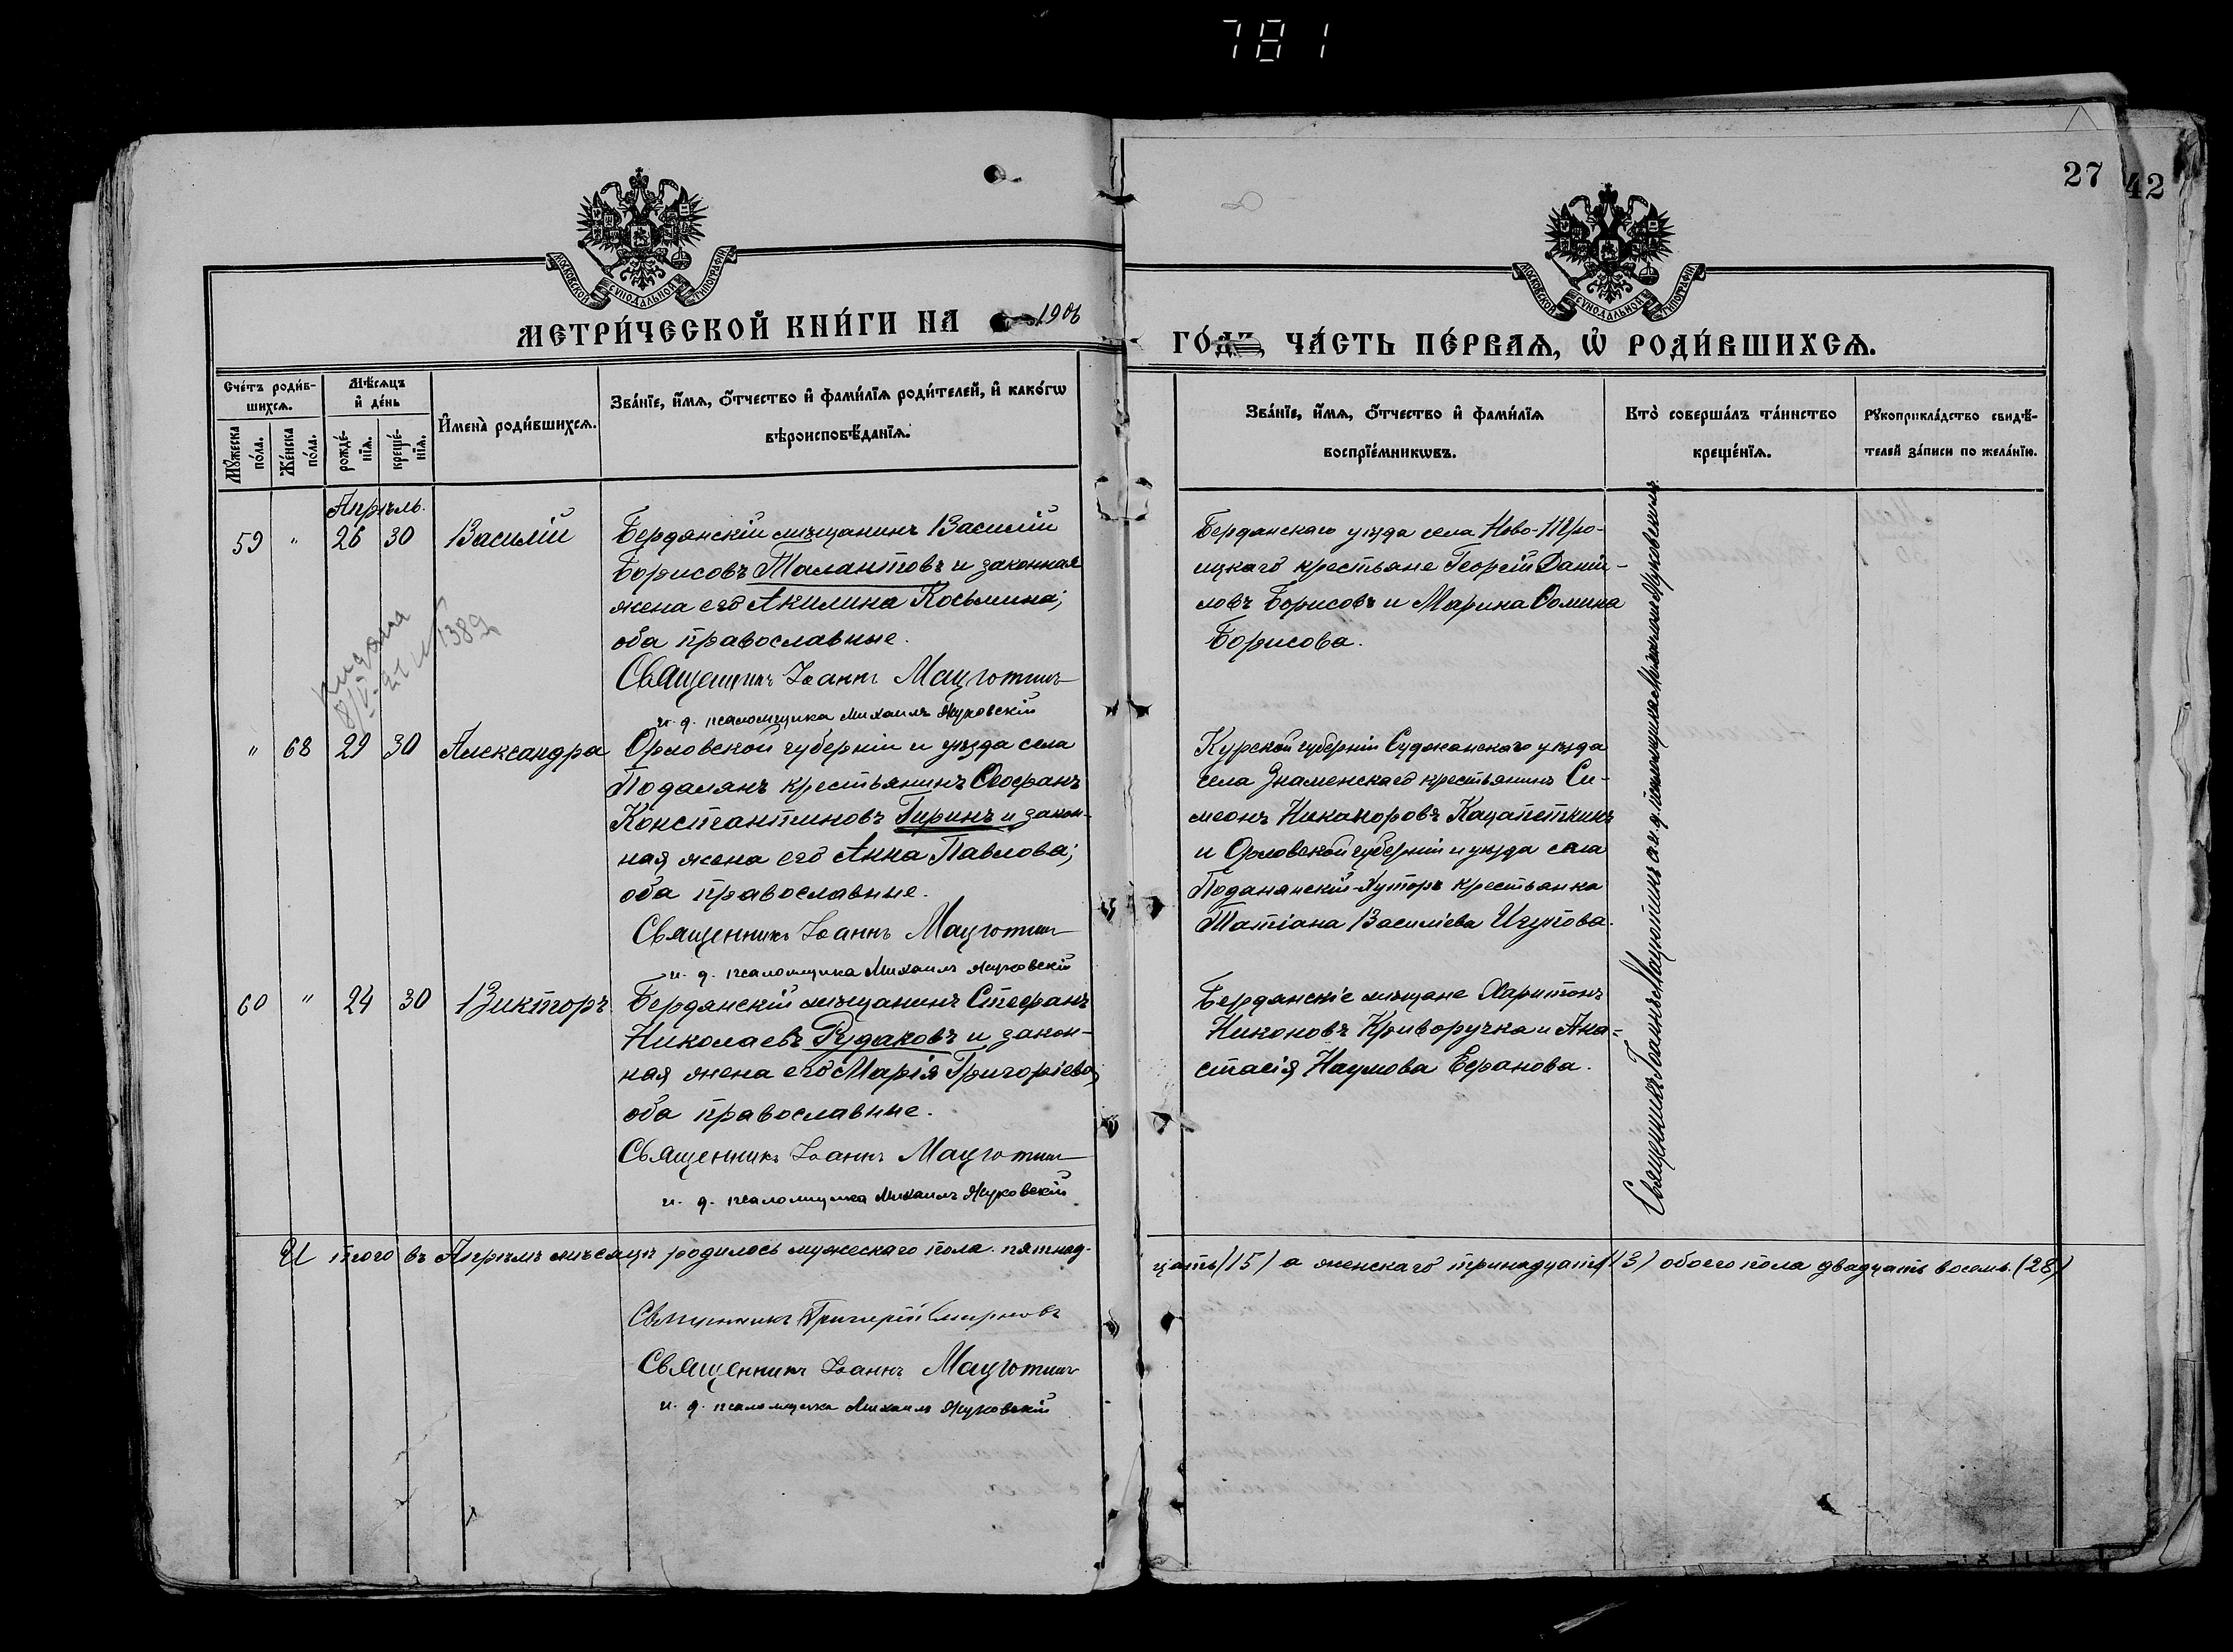 781
27
42
МОСКОВСКОЙ СѴНОДАЛЬНОЙ ТИПОГРАФІИ
МОСКОВСКОЙ СѴНОДАЛЬНОЙ ТИПОГРАФІИ
МЕТРИ́ЧЕСКОЙ КНИ́ГИ НА 1906
ГО́ДЪ, ЧА́СТЬ ПЕ́РВАѦ, Ѡ҆ РОДИ́ВШИХСѦ.
Сче́тъ роди́в-
шихсѧ.
Мѣ́сѧцъ
и҆ де́нь
И҆мена̀ роди́вшихсѧ.
Зва́нїе, и҆́мѧ, ѻ҆́тчество и҆ фами́лїѧ роди́телей, и҆ како́гѡ
вѣроисповѣ́данїѧ.
Мꙋ́жеска
по́ла.
Же́нска
по́ла.
рожде́-
нїѧ.
креще́-
нїѧ.
Зва́нїе, и҆́мѧ, ѻ҆́тчество и҆ фами́лїѧ
воспрїе́мникѡвъ.
Кто̀ соверша́лъ та́инство
креще́нїѧ.
Рꙋкоприкла́дство свидѣ́-
телей за́писи по жела́нїю.
Апрѣль.
59 " 26 30 Василій
Бердянскій мѣщанинъ Василій
Борисовъ Талантовъ и законная
жена его Акилина Косьмина;
оба православные.
Священникъ Іоаннъ Мацютинъ
и. д. псаломщика Михаилъ Жуковскій
Бердянскаго уѣзда села Ново-Тро-
ицкаго крестьяне Георгій Даніи-
ловъ Борисовъ и Марина Ѳомина
Борисова.
выдана
1389
" 68 29 30 Александра
Орловской губерніи и уѣзда села
крестьянинъ Ѳеофанъ
Константиновъ Гиринъ и закон-
ная жена его Анна Павлова;
оба православные.
Священникъ Іоаннъ Мацютинъ
и. д. псаломщика Михаилъ Жуковскій
Курской губерніи Суджанскаго уѣзда
села Знаменскаго крестьянинъ Си-
меонъ Никаноровъ Кацапеткинъ
и Орловской губерніи и уѣзда села
Хуторъ крестьянка
Татіана Василіева
60 " 24 30 Викторъ
Бердянскій мѣщанинъ Стефанъ
Николаевъ Рудаковъ и закон-
ная жена его Марія Григоріева;
оба православные.
Священникъ Іоаннъ Мацютинъ
и. д. псаломщика Михаилъ Жуковскій
Бердянскіе мѣщане Харитонъ
Никоновъ Криворучка и Ана-
стасія Наумова
Священникъ Іоаннъ Мацютинъ и и. д. псаломщика Михаилъ Жуковскій
Итого въ Апрѣлѣ мѣсяцѣ родилось мужескаго пола пятнад-
цать (15) а женскаго тринадцать (13) обоего пола двадцать восемь (28)
Священникъ Григорій Смирновъ
Священникъ Іоаннъ Мацютинъ
и. д. псаломщика Михаилъ Жуковскій